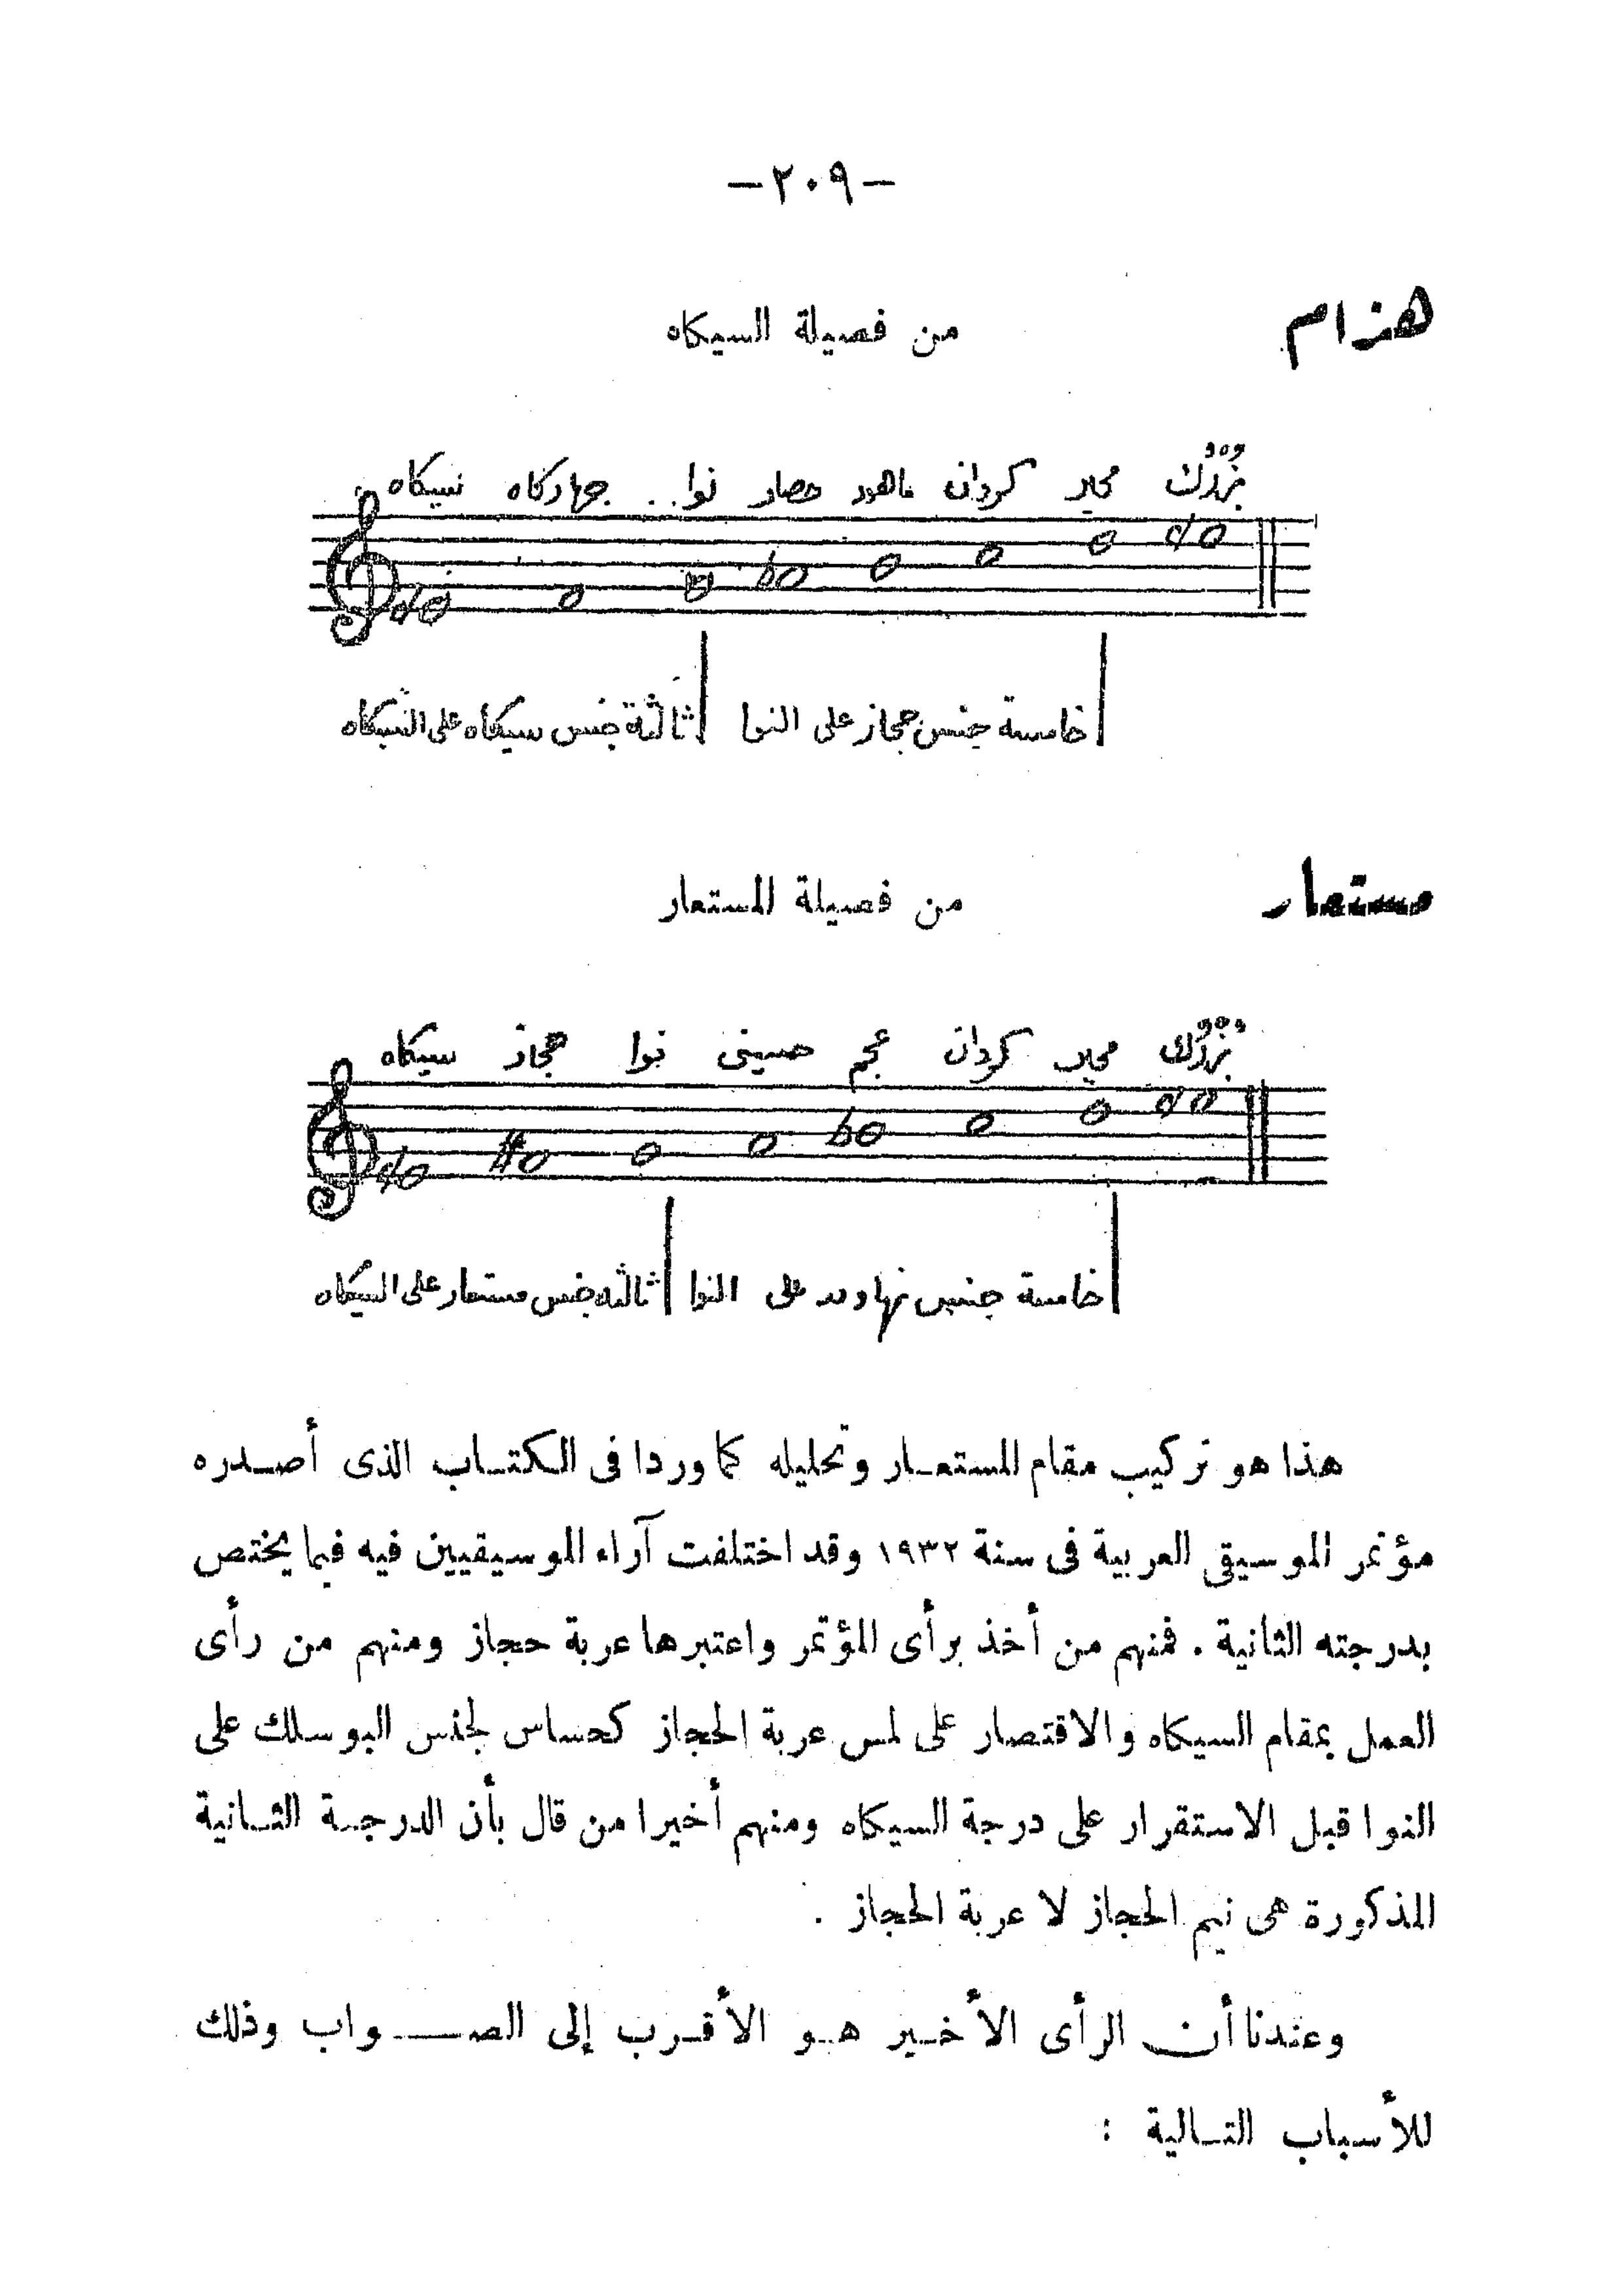 -٢٠٩-
هزام
من فصيلة السيكاه
سيكاه جهاركاه نوا حصار ماهور كردان محير بزرك
خامسة جنس حجاز على النوا ثالثة جنس سيكاه على السيكاه
مستعار
من فصيلة المستعار
سيكاه حجاز نوا حسينى عجم كردان محير بزرك
خامسة جنس نهاوند على النوا ثالثه جنس مستعار على السيكاه
هذا هو تركيب مقام المستعار وتحليله كما وردا فى الكتاب الذى أصدره
مؤتمر الموسيقى العربية فى سنة ١٩٣٢ وقد اختلفت آراء الموسيقيين فيه فيما يختص
بدرجته الثانية . فمنهم من أخذ برأى المؤتمر واعتبرها عربة حجاز ومنهم من رأى
العمل بمقام السيكاه والاقتصار على لمس عربة الحجاز كحساس لجنس البوسلك على
النوا قبل الاستقرار على درجة السيكاه ومنهم أخيرا من قال بأن الدرجة الثانية
المذكورة هى نيم الحجاز لا عربة الحجاز .
وعندنا أن الرأى الأخير هو الأقرب إلى الصواب وذلك
للأسباب التالية :